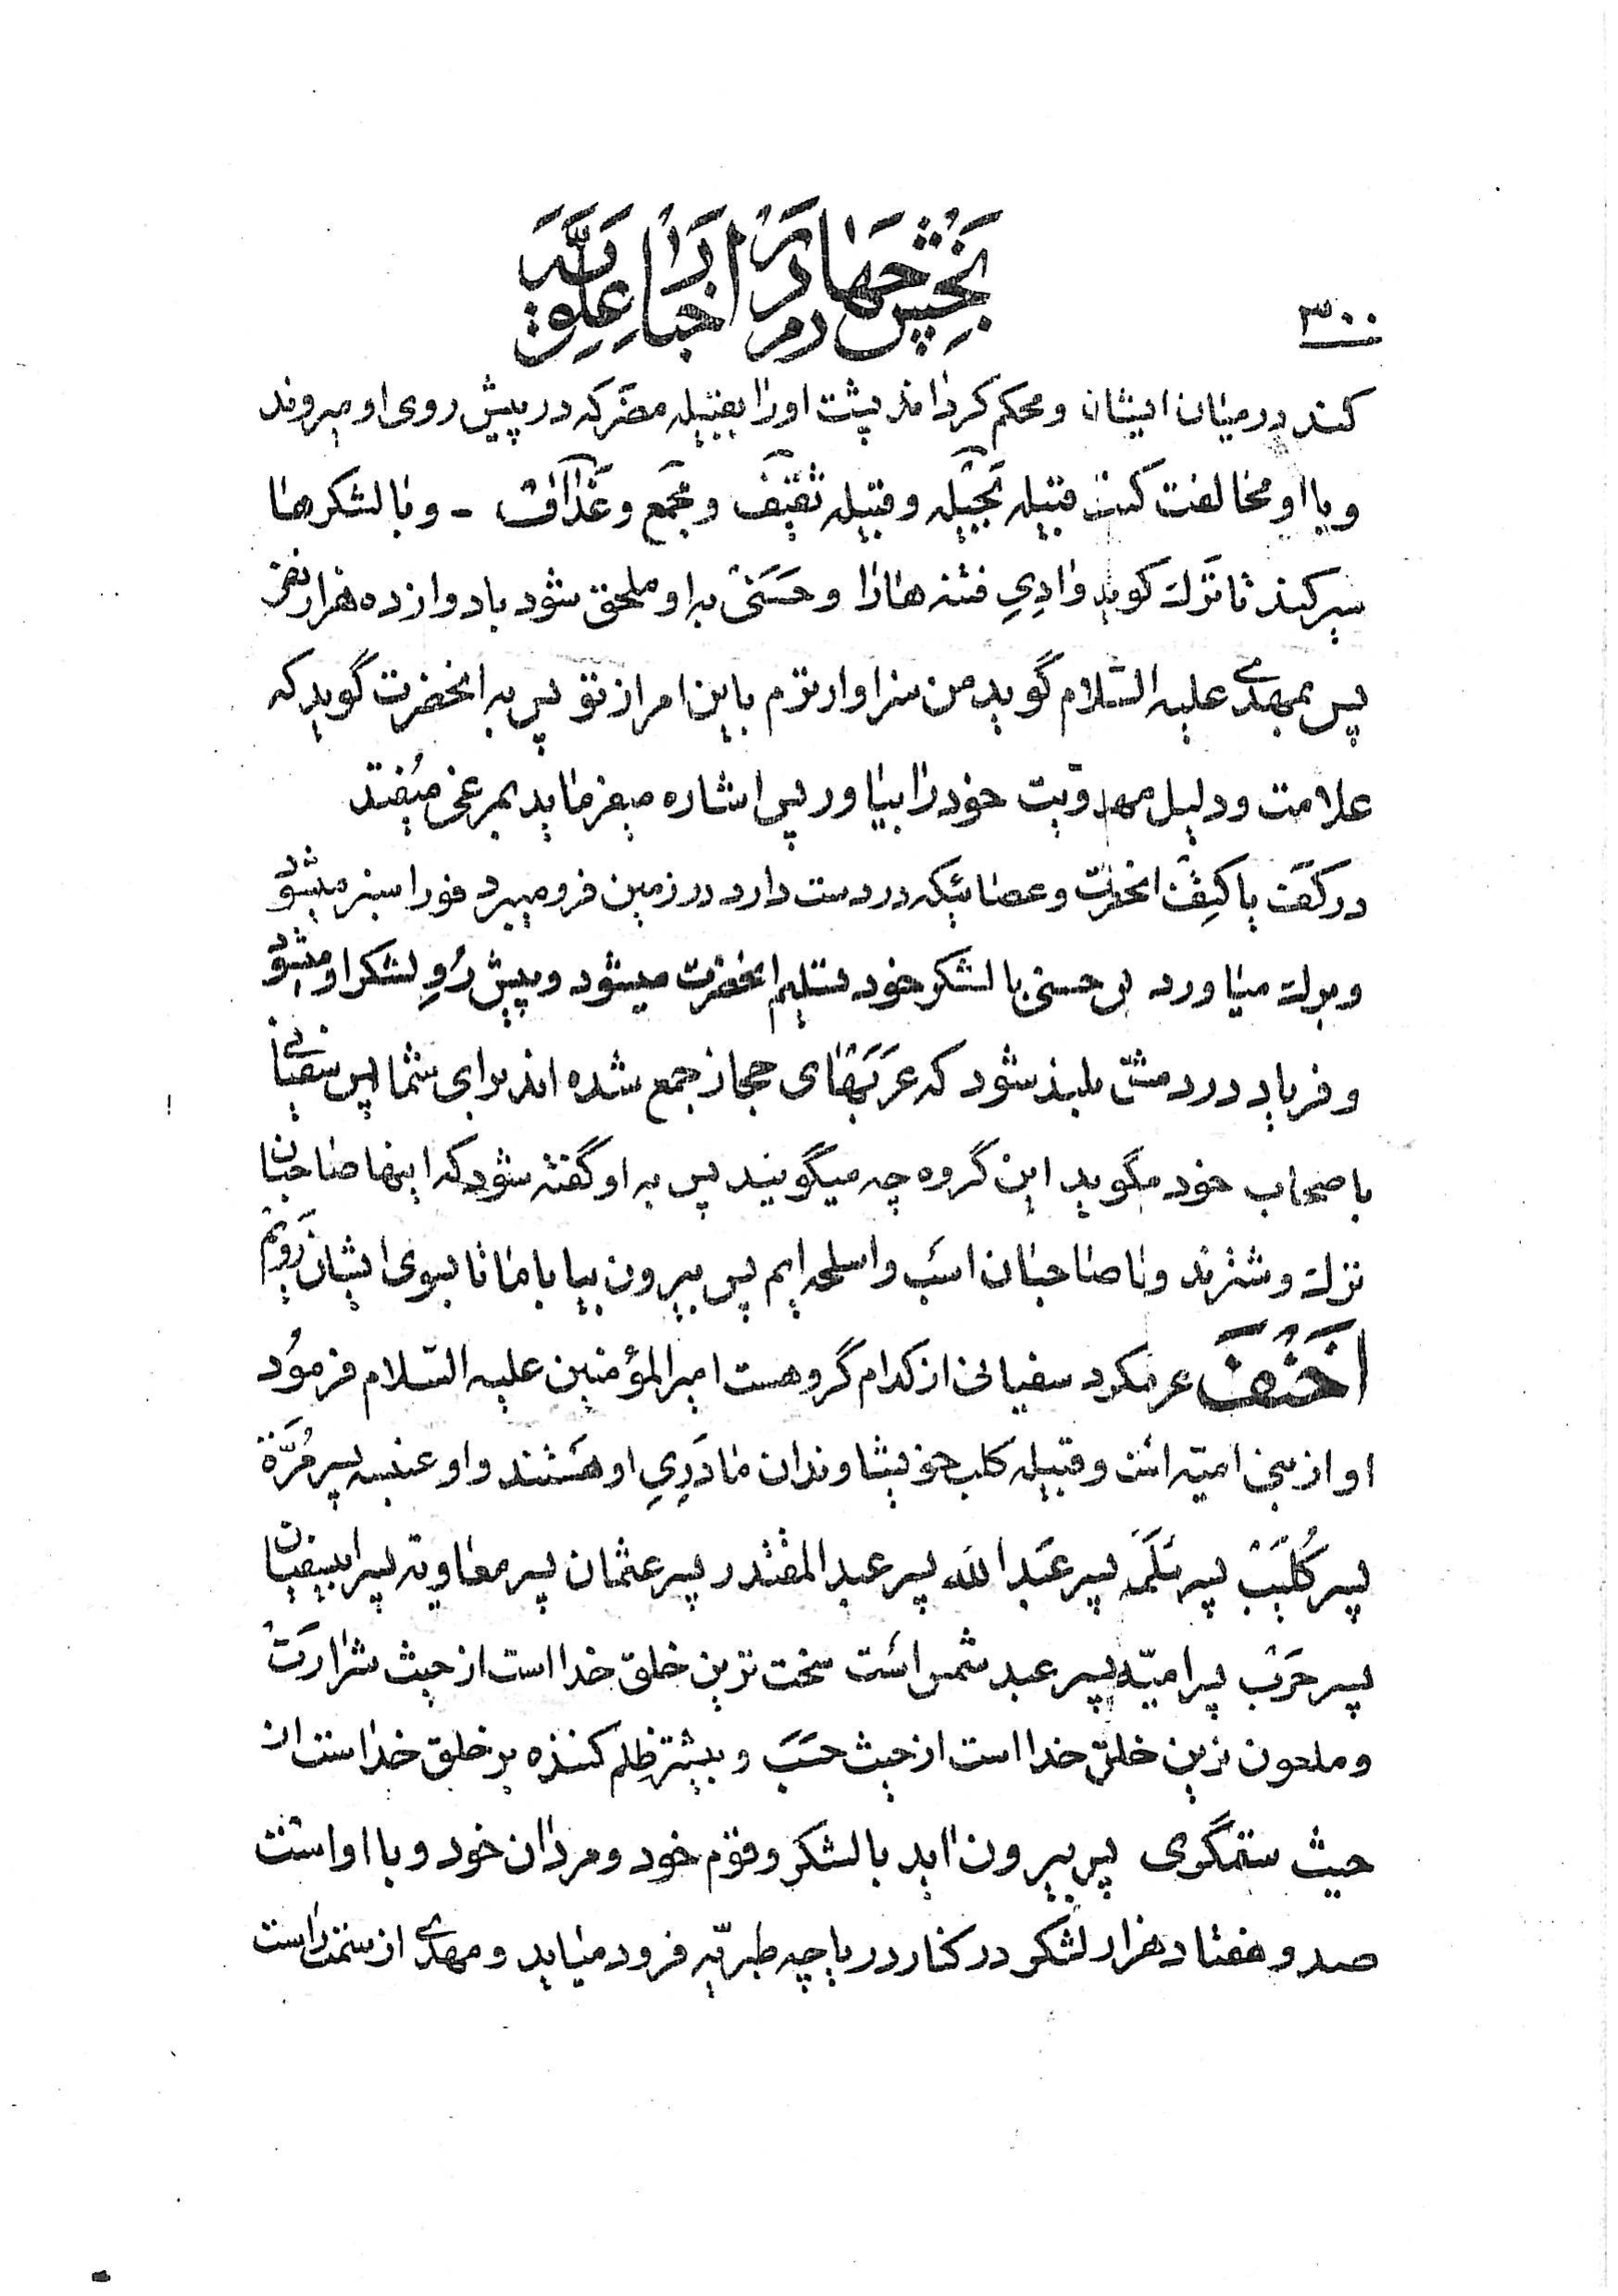 بخش چهارم در اخبار علویه
۳۰۰
کند در میان ایشان و محکم گرداند پشت او را بقبیله مضر که در پیش روی او میروند
و با او مخالفت کنند قبیله بجیله و قبیله ثقیف و مجمع و غداف - و با لشکرها
سیر کند تا ترک گوید وادی فتنه ها را و حسنی به او ملحق شود با دوازده هزار نفر
پس بمهدی علیه السلام گوید من سزاوارترم باین امر از تو پس به انحضرت گوید که
علامت و دلیل مهدویت خود را بیاور پس اشاره میفرماید بمرغی میفتد
در کف یا کتف انحضرت و عصائیکه در دست دارد در زمین فرو میبرد فورا سبز میشود
و برک میاورد پس حسنی با لشکر خود تسلیم انحضرت میشود و پیش رو لشکر او میشود
و فریاد در دمشق بلند شود که عربهای حجاز جمع شده اند برای شما پس سفیانی
باصحاب خود میگوید این گروه چه میگویند پس به او گفته شود که اینها صاحبان
ترک و شترند و ما صاحبان اسب و اسلحه ایم پس بیرون بیا با ما تا بسوی ایشان رویم
احنف عرضکرد سفیانی از کدام گروهست امیرالمؤمنین علیه السلام فرمود
او از بنی امیه است و قبیله کلب خویشاوندان مادری او هستند و او عنبسه پسر مرة
پسر کلیب پسر سلمه پسر عبد الله پسر عبد المقتدر پسر عثمان پسر معاویه پسر ابیسفیان
پسر حرب پسر امیه پسر عبد شمس است سخت ترین خلق خدا است از حیث شرارت
و ملعون ترین خلق خدا است از حیث حسب و بیشتر ظلم کننده بر خلق خداست از
حیث ستمگری پس بیرون اید با لشکر و قوم خود و مردان خود و با او است
صد و هفتاد هزار لشکر در کنار دریاچه طبریه فرود میاید و مهدی از سمت راست